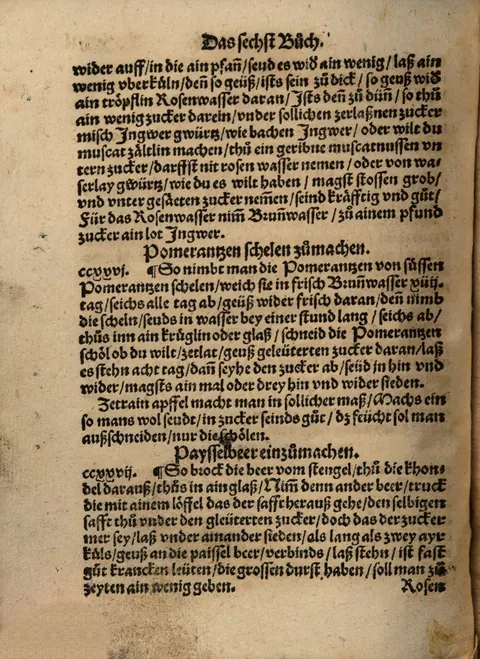 Das sechst Bůch.
wider auff/in die ain pfañ/seud es wid ain wenig/laß ain
wenig vberkůln/deñ so geüß/ists sein zů dick/so geuß wid
ain tröpflin Rosenwasser daran/Ists deñ zů düñ/so thů
ain wenig zucker darein/vnder sollichen zerlaßnen zucker
misch Jngwer gwürtz/wie bachen Jngwer/oder wilt du
muscat zältlin machen/thů ein geribne muscatnussen vn
tern zucker/darffst nit rosen wasser nemen/oder von wa-
serlay gwürtz/wie du es wilt haben/magst stossen grob/
vnd vnter gefäeten zucker nem̃en/seind kräfftig vnd gůt/
Für das Rosenwasser nim̃ Bruñwasser/zů ainem pfund
zucker ain lot Jngwer.
Pomerantzen schelen zůmachen.
ccxxvj. ¶So nimbt man die Pomerantzen von süssen
Pomerantzen schelen/weich sie in frisch Bruñwasser xiiij.
tag/seichs alle tag ab/geüß wider frisch daran/deñ nimb
die scheln/seuds in wasser bey einer stund lang/seichs ab/
thůs inn ain krůglin oder glaß/schneid die Pomerantzen
schöl ob du wilt/zerlat/geuß geleüterten zucker daran/laß
es stehn acht tag/dañ seyhe den zucker ab/seüd in hin vnd
wider/magsts ain mal oder drey hin vnd wider sieden.
Zetrain apffel macht man in sollicher maß/Machs ein
so mans wol seudt/in zucker seinds gůt/dz feücht sol man
außschneiden/nur die schölen.
Paysselbeer einzůmachen.
ccxxvij. ¶So brock die beer vom stengel/thů die khon-
del darauß/thůs in ain glaß/Nim̃ denn ander beer/truck
die mit ainem löffel das der safft herauß gehe/den selbigen
safft thů vnder den gleüterten zucker/doch das der zucker
mer sey/laß vnder ainander sieden/als lang als zwey ayr
kůls/geuß an die paissel beer/verbinds/laß stehn/ist fast
gůt krancken leüten/die grossen durst haben/soll man zů
zeyten ain wenig geben. Rosen